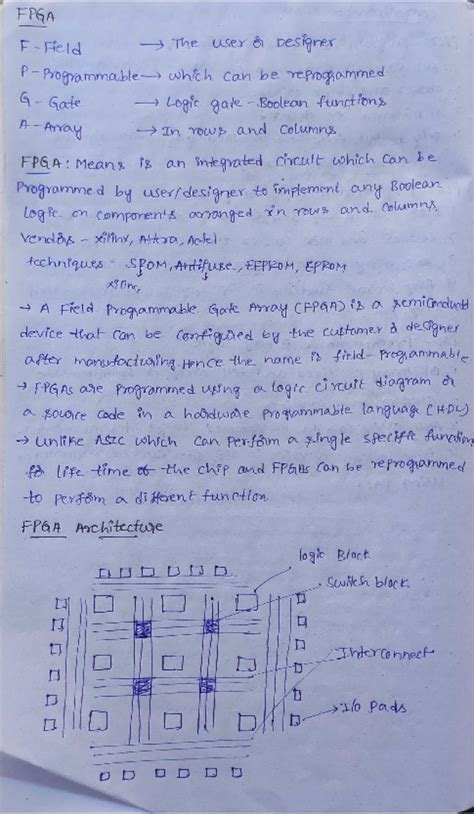 FPGA
F - Field → The user or Designer
P - Programmable → which can be reprogrammed
G - Gate → Logic gate - Boolean functions
A - Array → In rows and columns
FPGA : Means is an integrated circuit which can be
Programmed by user/designer to implement any Boolean
logic on components arranged in rows and columns
Vendors - xilinx, Altra, Actel
techniques - SROM, Antifuse, EEPROM, EPROM
xilinx
→ A Field Programmable Gate Array (FPGA) is a semiconduct
device that can be configured by the customer or designer
after manufacturing. Hence the name is field-programmable
→ FPGAs are programmed using a logic circuit diagram or
a source code in a hardware programmable language (HDL)
→ Unlike ASIC which can perform a single specific function
for life time of the chip and FPGAs can be reprogrammed
to perform a different function.
FPGA Architecture
logic Block
Switch block
Interconnect
I/o Pads